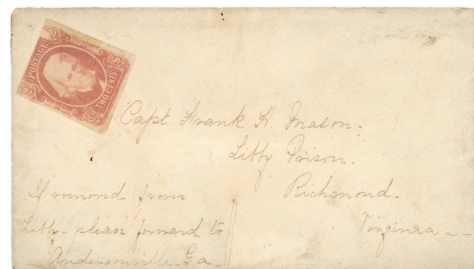 POSTAGE
TWO CENTS
Capt. Frank H. Mason.
Libby Prison.
Richmond.
Virginia
If removed from
Libby please forward to
Andersonville Ga.